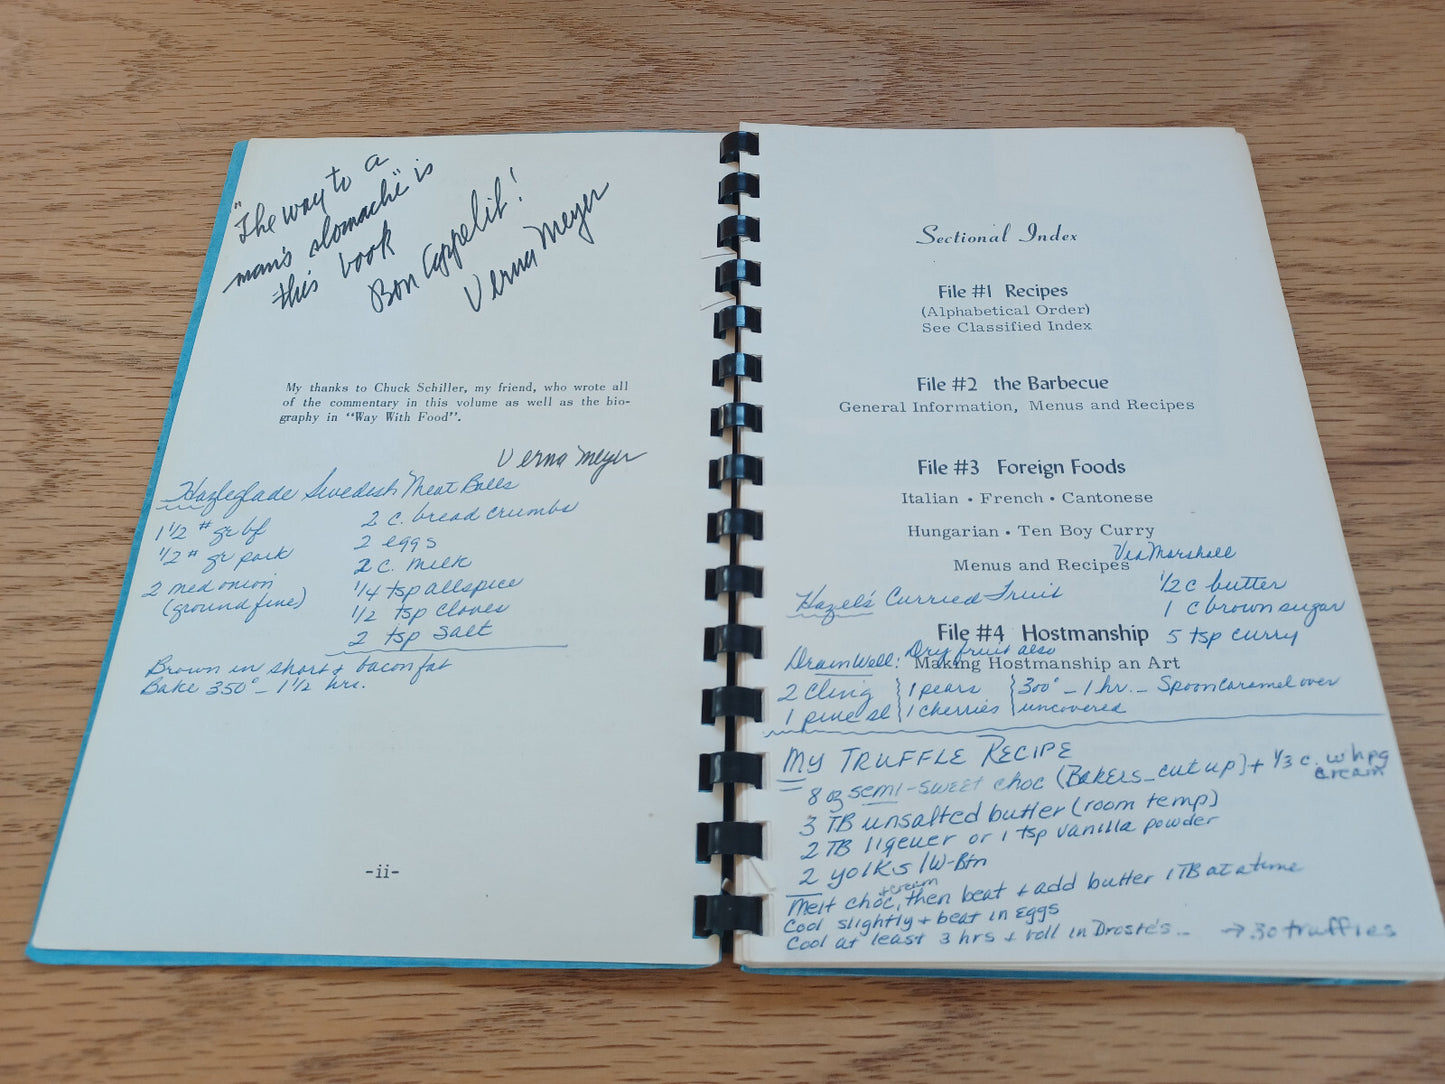 "The way to a
man's stomache" is
this book
Bon Appetit!
Verna Meyer
My thanks to Chuck Schiller, my friend, who wrote all
of the commentary in this volume as well as the bio-
graphy in "Way With Food".
Verna Meyer
Hazleglade Swedish Meat Balls
1 1/2 # gr bf
1/2 # gr pork
2 med onion
(ground fine)
2 c. bread crumbs
2 eggs
2 c. milk
1/4 tsp allspice
1/2 tsp cloves
2 tsp salt
Brown in short + bacon fat
Bake 350° - 1 1/2 hrs.
-ii-
Sectional Index
File #1 Recipes
(Alphabetical Order)
See Classified Index
File #2 the Barbecue
General Information, Menus and Recipes
File #3 Foreign Foods
Italian • French • Cantonese
Hungarian • Ten Boy Curry
Menus and Recipes
Via Marshall
Hazel's Curried Fruit
1/2 c butter
1 c brown sugar
5 tsp curry
File #4 Hostmanship
Making Hostmanship an Art
Drain Well: Dry fruit also
2 cling } 1 pears } 300° - 1 hr. - Spoon caramel over
1 pine sl } 1 cherries } uncovered
My Truffle Recipe
8 oz semi-sweet choc (Bakers - cut up) + 1/3 c. whpg
cream
3 TB unsalted butter (room temp)
2 TB liqeuer or 1 tsp vanilla powder
2 yolks /W-Btn
Melt choc + cream, then beat + add butter 1 TB at a time
Cool slightly + beat in eggs
Cool at least 3 hrs + roll in Droste's - → 30 truffles